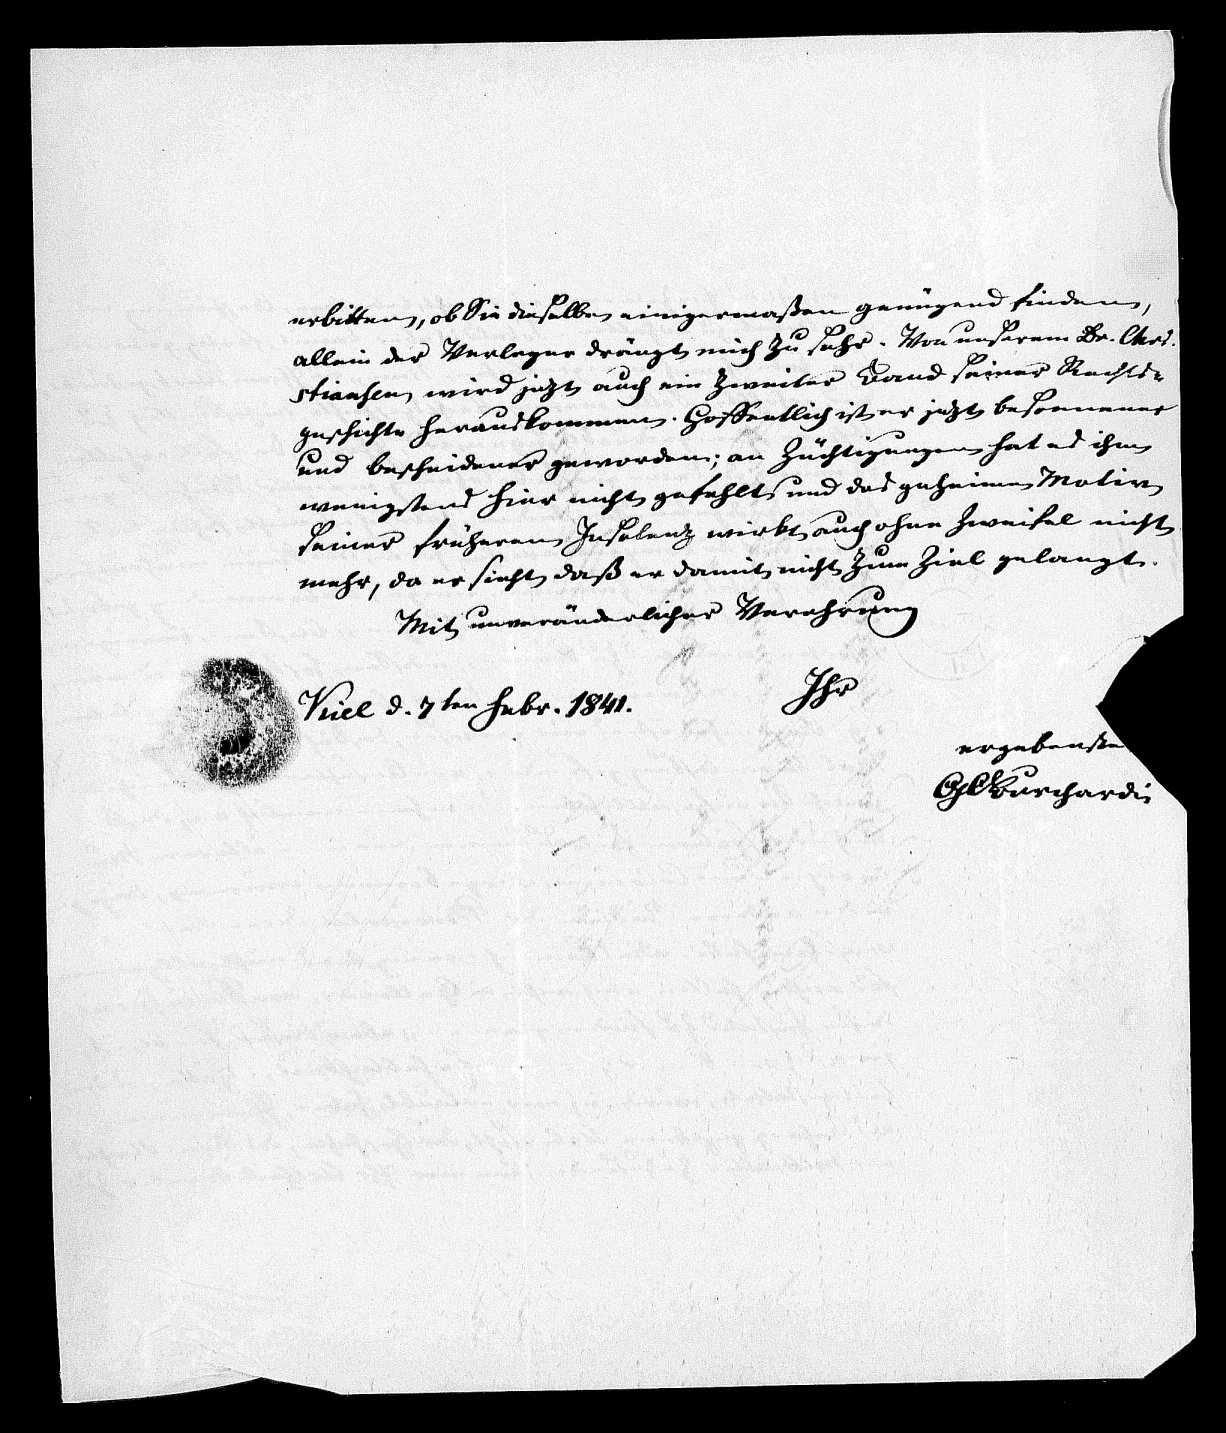 erbitten, ob Sie dieselben einigermaßen genügend finden,
allein der Verleger drängt mich zu sehr. Von unserem Dr. Chri-
stiansen wird jezt auch ein zweiter Band seiner Rechts-
geschichte herauskommen. Hoffentlich ist er jezt besonnener
und bescheidener geworden; an Züchtigungen hat es ihm
wenigstens hier nicht gefehlt und das geheime Motiv
seiner früheren Insolenz wirkt auch ohne Zweifel nicht
mehr, da er sieht, daß er damit nicht zum Ziel gelangt.
Mit unveränderlicher Verehrung
Ihr
Kiel d. 7ten Febr. 1841.
ergebenste
GCBurchardi